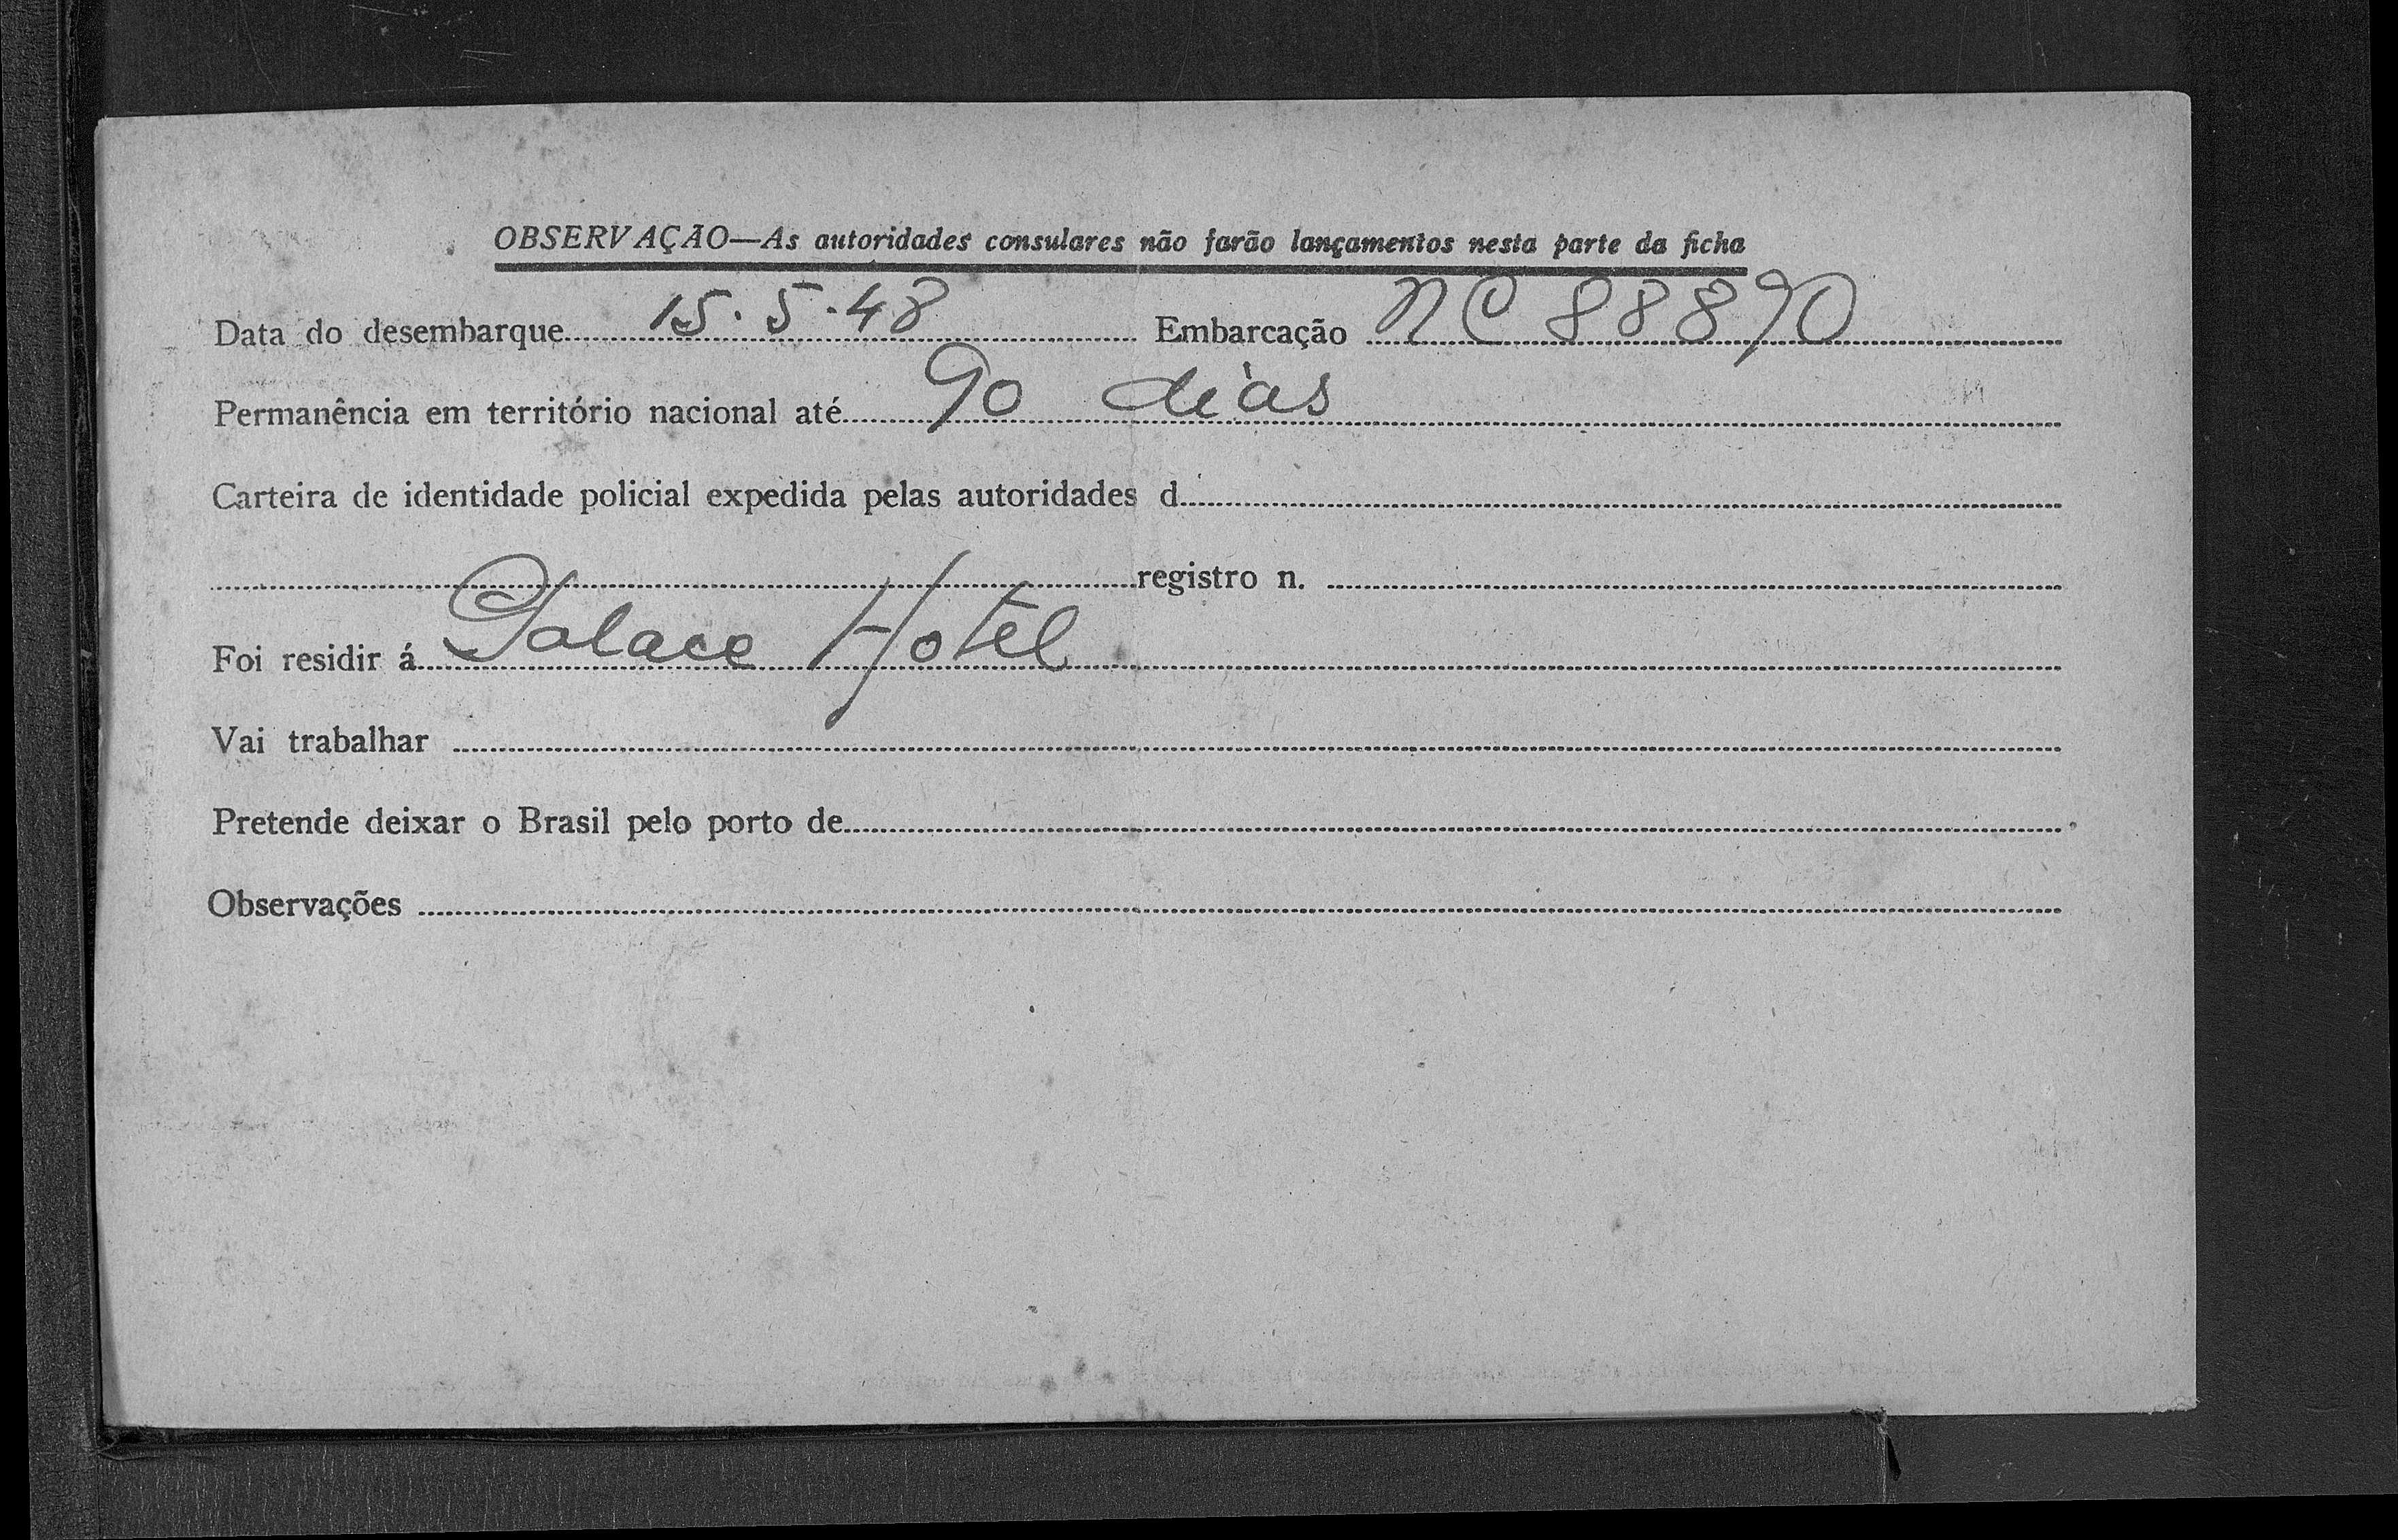 OBSERVAÇÃO—As autoridades consulares não farão lançamentos nesta parte da ficha
Data do desembarque 15.5.48 Embarcação NC 88890
Permanência em território nacional até 90 dias
Carteira de identidade policial expedida pelas autoridades d
registro n.
Foi residir á Palace Hotel
Vai trabalhar
Pretende deixar o Brasil pelo porto de
Observações